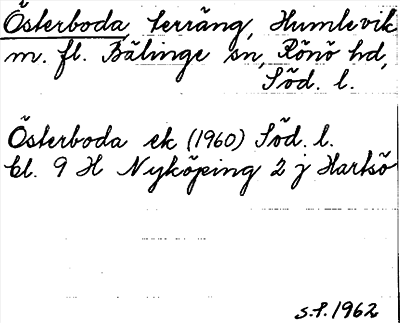 Österboda, terräng, Humlevik
m. fl. Bälinge sn, Rönö hd,
Söd. l.
Österboda ek (1960) Söd. l.
bl. 9 H Nyköping 2 j Hartsö
S.F. 1962